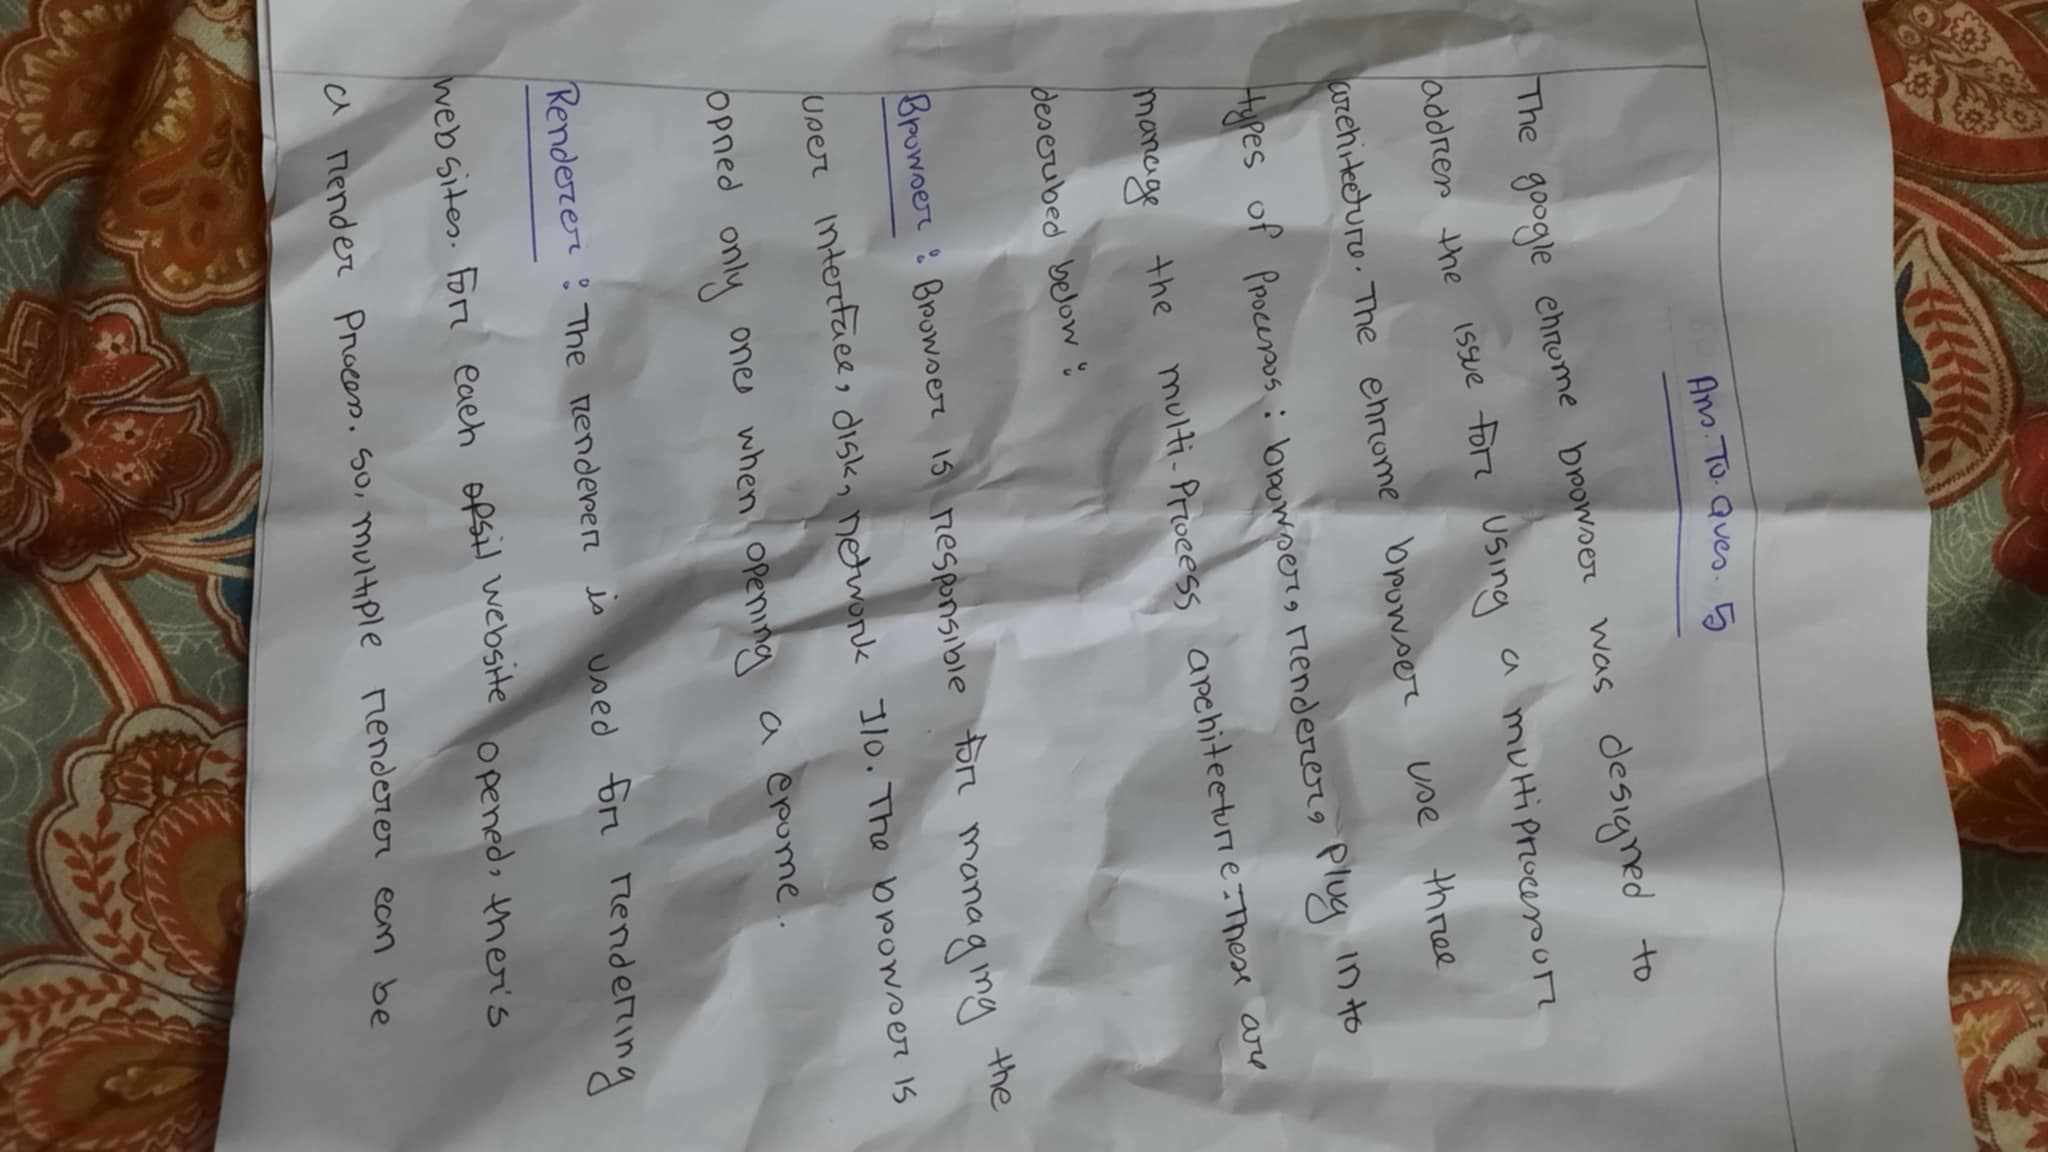 Ans. To. Ques. 5
The google chrome browser was designed to
address the issue for using a multiprocessor
architecture. The chrome browser use three
types of process : browser, renderer, Plug in to
manage the multi-Process architecture. These are
described below :
Browser : Browser is responsible for managing the
user interface, disk, network I/O. The browser is
opned only ones when opening a crome.
Renderer : The renderer is used for rendering
websites. For each opsil website opened, ther's
a render Process. So, multiple renderer can be